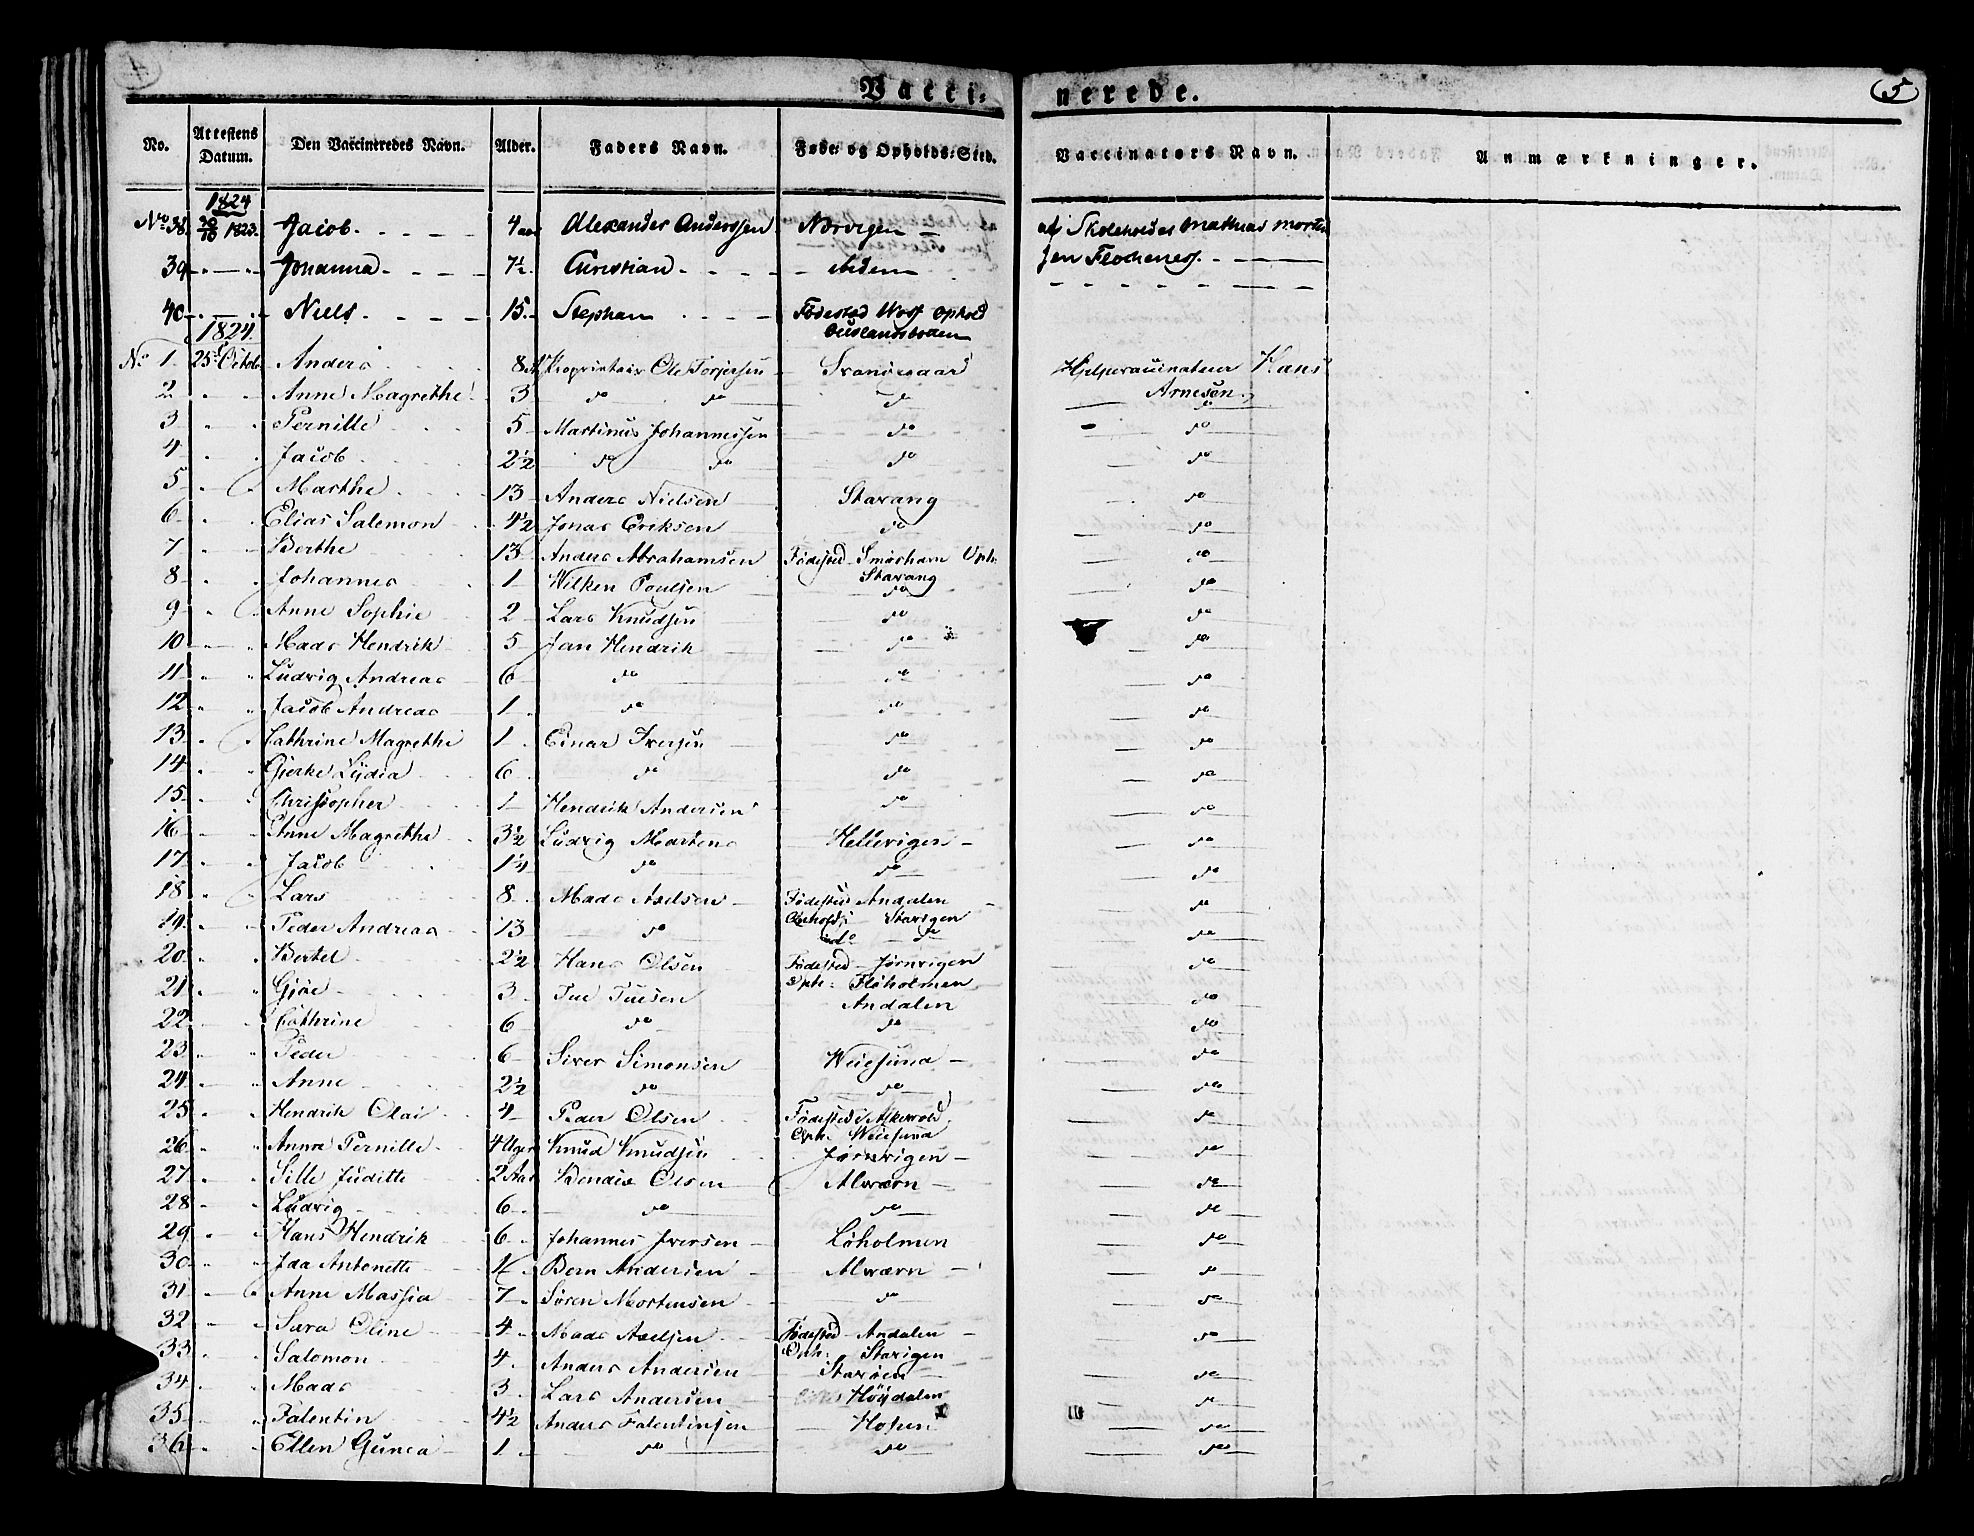 4
Vacci-
nerede.
5
No. Attestens Datum. Den Vaccineredes Navn. Alder. Faders Navn. Føde- og Opholds-Sted. Vaccinators Navn. Anmærkninger.
1824
No 38. 1823. Jacob. 4 Alexander Anderssen Norvigen af Skoleholder Mathias Morten
39 Johanna 7½ Christian ibidem sen Flochenes.
40 Niels. 15. Stephan Fødested Ophold
1824
No 1. 25 Octob. Anders 8 Proprietair Ole Torjersen Svanøegaard Hjelpevaccinateur Hans
2 Anne Magrethe 3 do do do Arnesen
3 Pernille 5 Martinus Johannessen do do
4 Jacob 2½ do do do do
5 Marthe 13 Anders Nielsen Stavang do
6 Elias Salemon 4½ Jonas Eriksen do do
7 Berthe 13 Anders Abrahamsen Fødested Smørhavn Oph. do
Stavang
8 Johannes 1 Wilken Poulsen do do
9 Anne Sophie 2 Lars Knudsen do do
10 Mads Hendrik 5 Jan Hendrik do do
11 Ludvig Andreas 6 do do do
12 Jacob Andreas 1 do do do
13 Cathrine Magrethe 1 Einar Iversen do do
14 Gjerke Lydia 6 do do do
15 Christopher 1 Hendrik Andersen do do
16 Anne Magrethe 3½ Ludvig Martens Hellevigen do
17 Jacob 1¼ do do do
18 Lars 8 Mads Axelsen Fødested Andalen do
Ophold: Stavigen
19 Peder Andreas 13 do do do do
20 Bertel 2½ Hans Olsen Fødested Jørnvigen do
Oph: Fløholmen
21 Gjøe 3 Tue Tuesen Andalen do
22 Cathrine 6 do do do
23 Peder 6 Siver Simonsen Weiesund do
24 Anne 2½ do do do
25 Hendrik Olai 4 Peder Olsen Fødested Alkevold do
Oph. Weiesund
26 Anna Pernille 4 Uger Knud Knudsen Jørnvigen do
27 Sille Juditte 2 Aar Bendix Olsen Alværn do
28 Ludvig 6 do do do
29 Hans Hendrik 6 Johannes Iversen Løholmen do
30 Ida Antonette Bern Andersen Alværn do
31 Anne Massia 7 Søren Mortensen do do
32 Sara Oline 4 Mads Axelsen Fødested Andalen do
Oph: Stavigen
33 Salomon 4 Anders Andersen Stavøen do
34 Mads 3 Lars Andersen Høydalen do
35 Falentin 4½ Anders Falentinsen Hosen do
36 Ellen Gunea 1 do do do